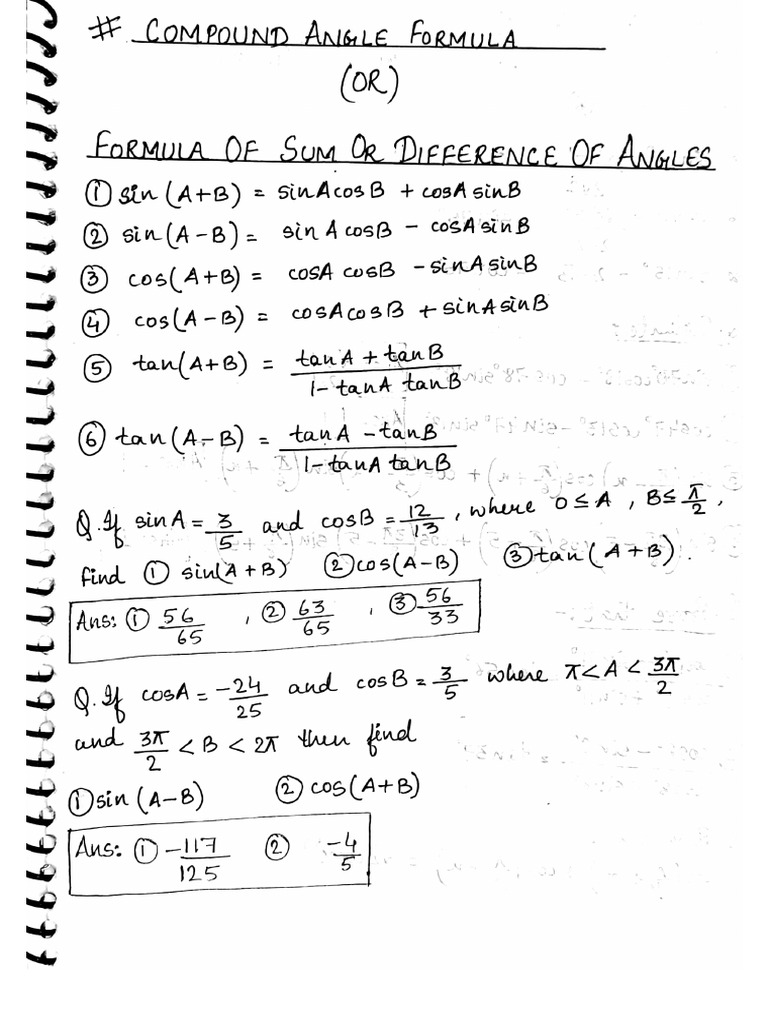 # COMPOUND ANGLE FORMULA
(OR)
FORMULA OF SUM OR DIFFERENCE OF ANGLES
① sin (A+B) = sinA cosB + cosA sinB
② sin (A-B) = sin A cosB - cosA sin B
③ cos(A+B) = cosA cosB - sinA sinB
④ cos(A-B) = cosA cosB + sinA sinB
⑤ tan(A+B) = tanA + tanB / 1-tanA tanB
⑥ tan(A-B) = tanA - tanB / 1-tanA tanB
Q. If sinA = 3/5 and cosB = 12/13, where 0≤A, B≤π/2,
find ① sin(A+B) ② cos(A-B) ③ tan(A+B).
Ans: ① 56/65, ② 63/65, ③ 56/33
Q. If cosA = -24/25 and cosB = 3/5 where π<A<3π/2
and 3π/2 < B < 2π then find
① sin (A-B) ② cos(A+B)
Ans: ① -117/125 ② -4/5